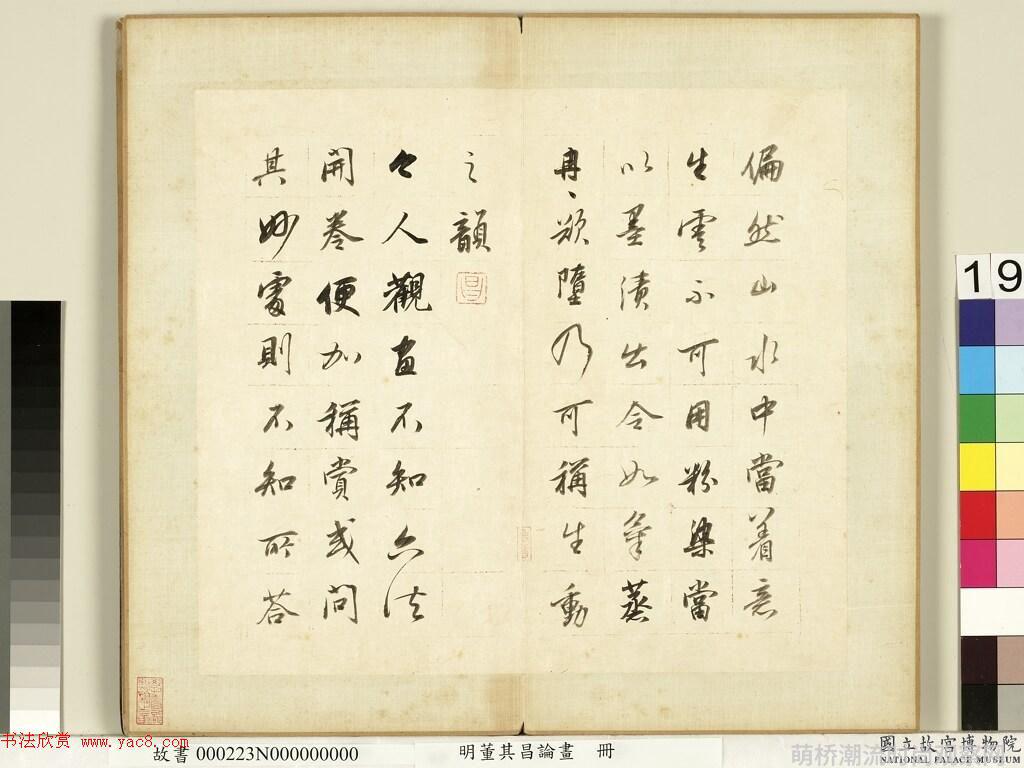 偏然山水中當着意
生雲不可用粉染當
以墨漬出令如氣蒸
冉〻欲墮乃可稱生動
之韻
昌
今人觀畫不知六法
開卷便加稱賞或問
其妙處則不知所荅
19
书法欣赏 www.yac8.com
故書 000223N000000000
明董其昌論畫 冊
國立故宮博物院
NATIONAL PALACE MUSEUM